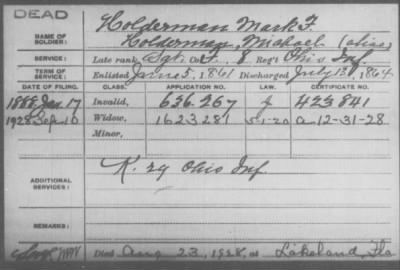 DEAD
Holderman Mark F.
NAME OF SOLDIER:
Holderman, Michael (alias)
SERVICE:
Late rank, Sgt. Co. F, 8 Reg't Ohio Inf.
TERM OF SERVICE:
Enlisted June 5, 1861 Discharged July 13, 1864
DATE OF FILING. CLASS. APPLICATION NO. LAW. CERTIFICATE NO.
1888 Jan. 17 Invalid, 636.267 423841
1928 Sep. 10 Widow, 1623281 5-1-20 A-12-31-28
Minor,
ADDITIONAL SERVICES:
K. 29 Ohio Inf.
REMARKS:
Died Aug 23, 1928, at Lakeland, Fla